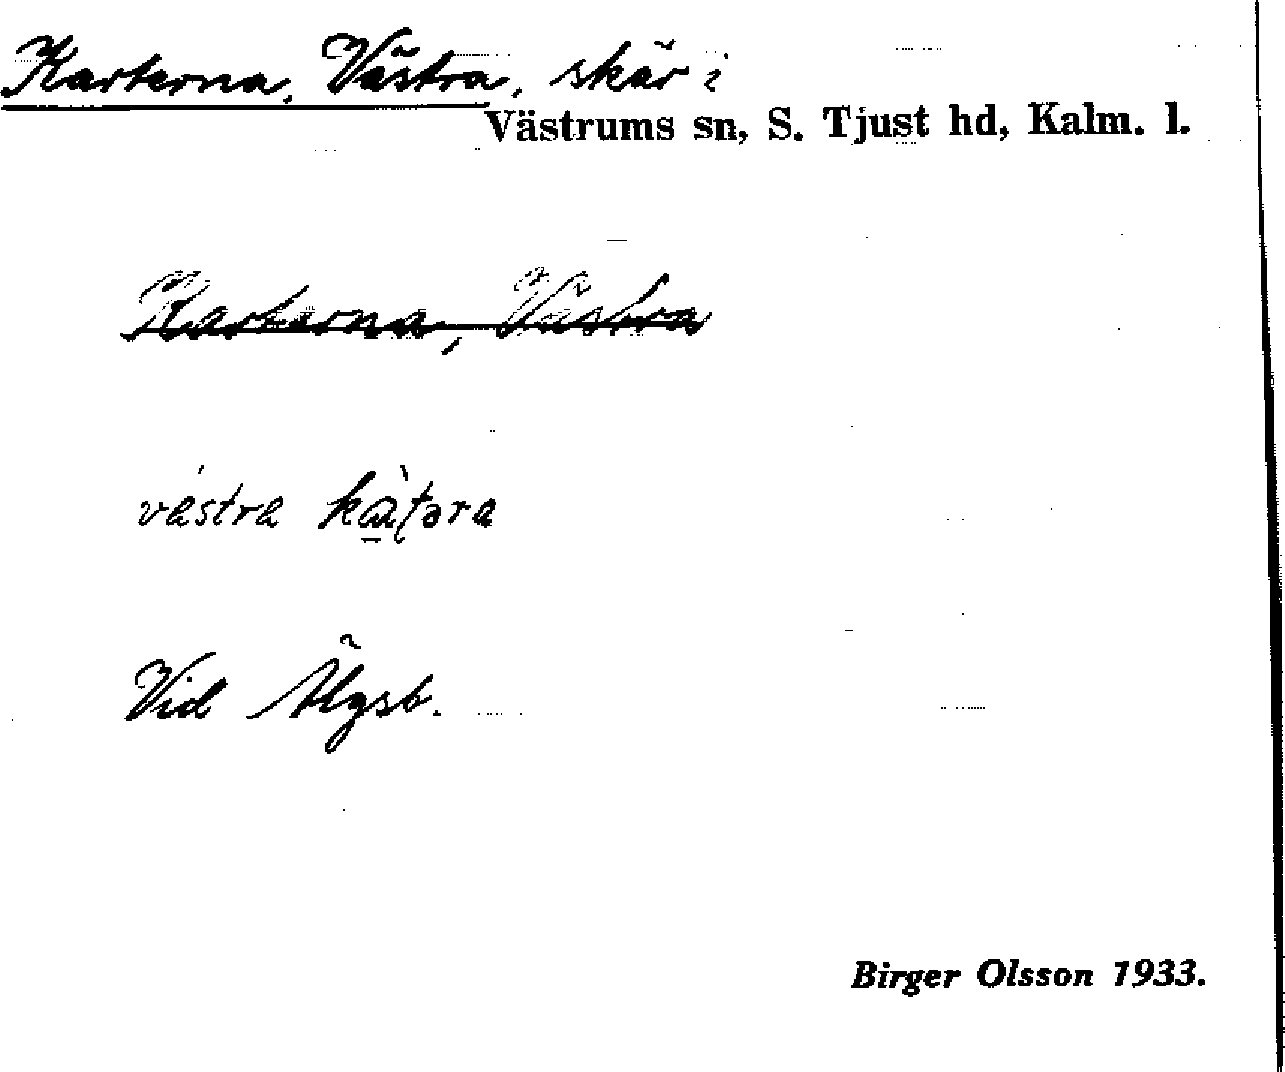 Karterna, Västra, skär i
Västrums sn, S. Tjust hd, Kalm. l.
Karterna, Västra
västra kàʈəra
Vid Älgsb.
Birger Olsson 1933.